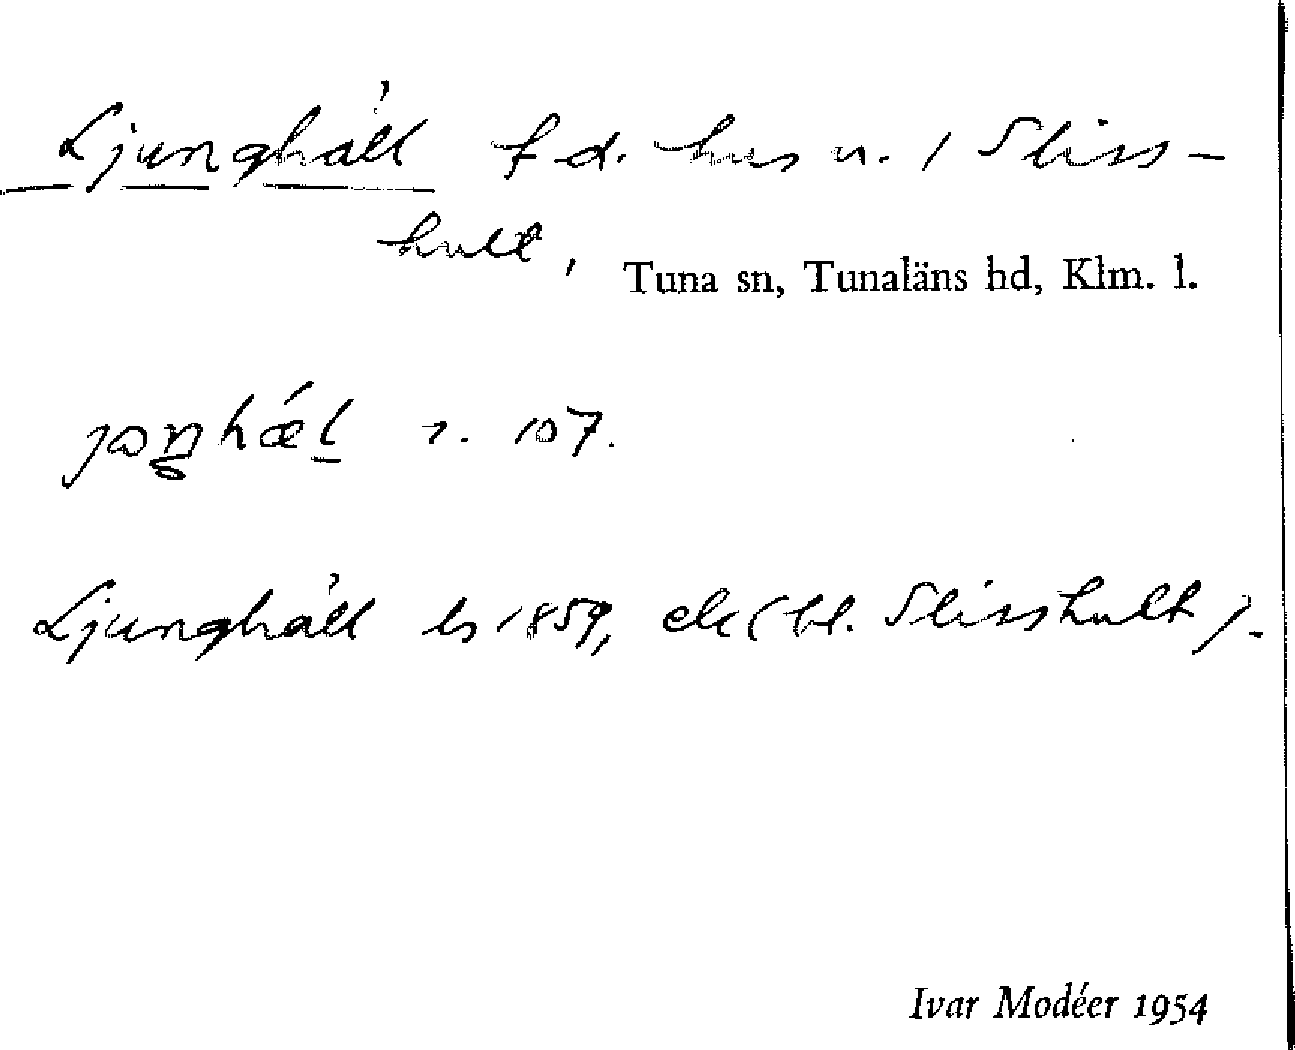 Ljunghäll f.d. hus u. / Sliss-
hult, Tuna sn, Tunaläns hd, Klm. l.
107.
Ljunghäll ls 1859, ek (bl. Slisshult).
Ivar Modéer 1954